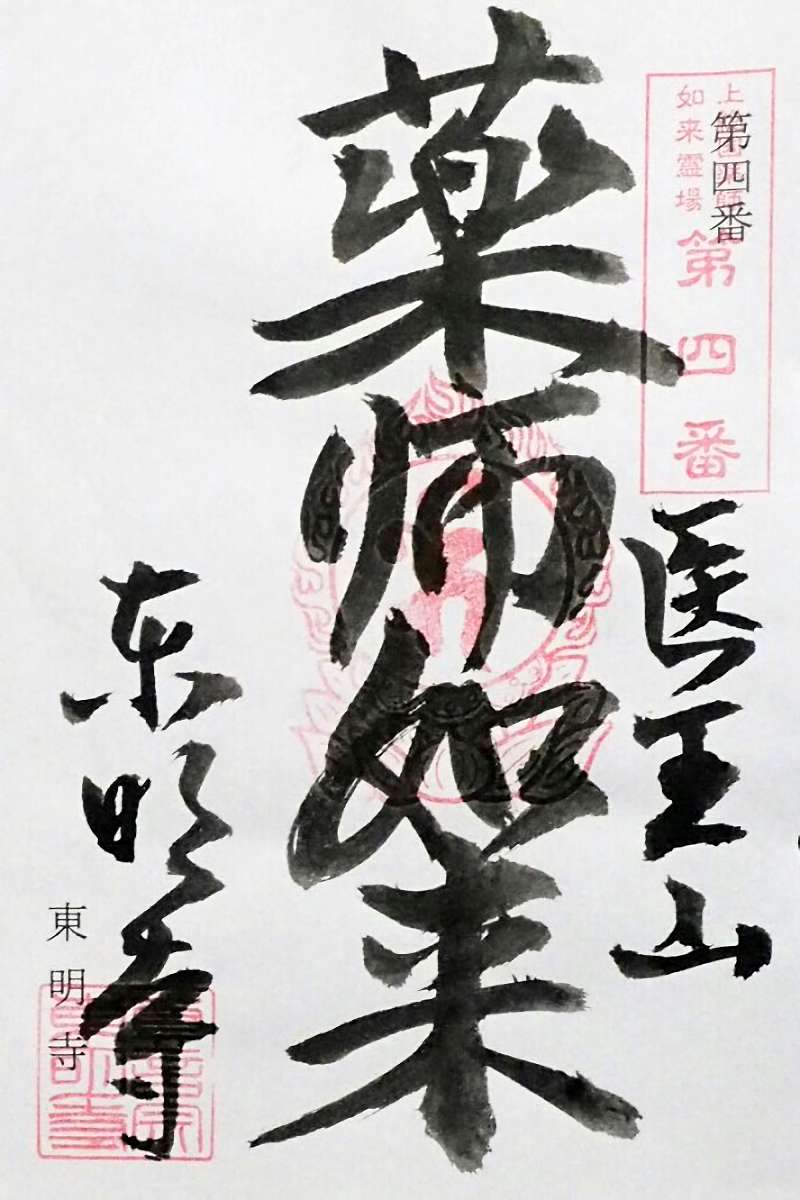 第四番
如来霊場
第四番
医王山
薬師如来
东明寺
東明寺